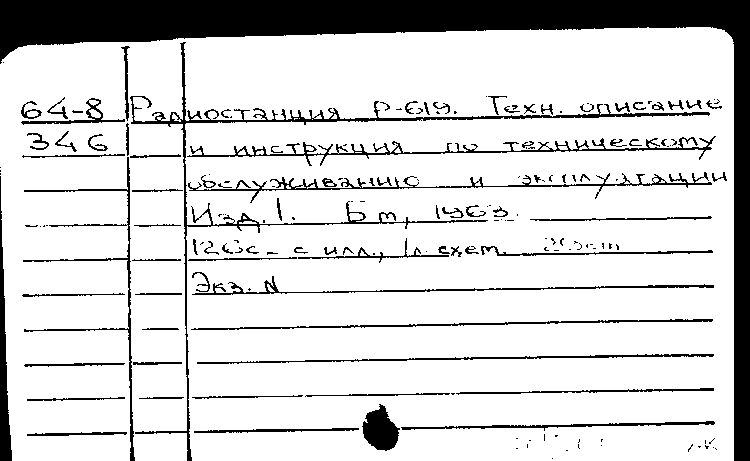 64-8 Радиостанция Р-619. Техн. описание
346 и инструкция по техническому
обслуживанию и эксплуатации
Изд. 1. Б м, 1963.
126с. с илл., 1л. схем.
Экз. N